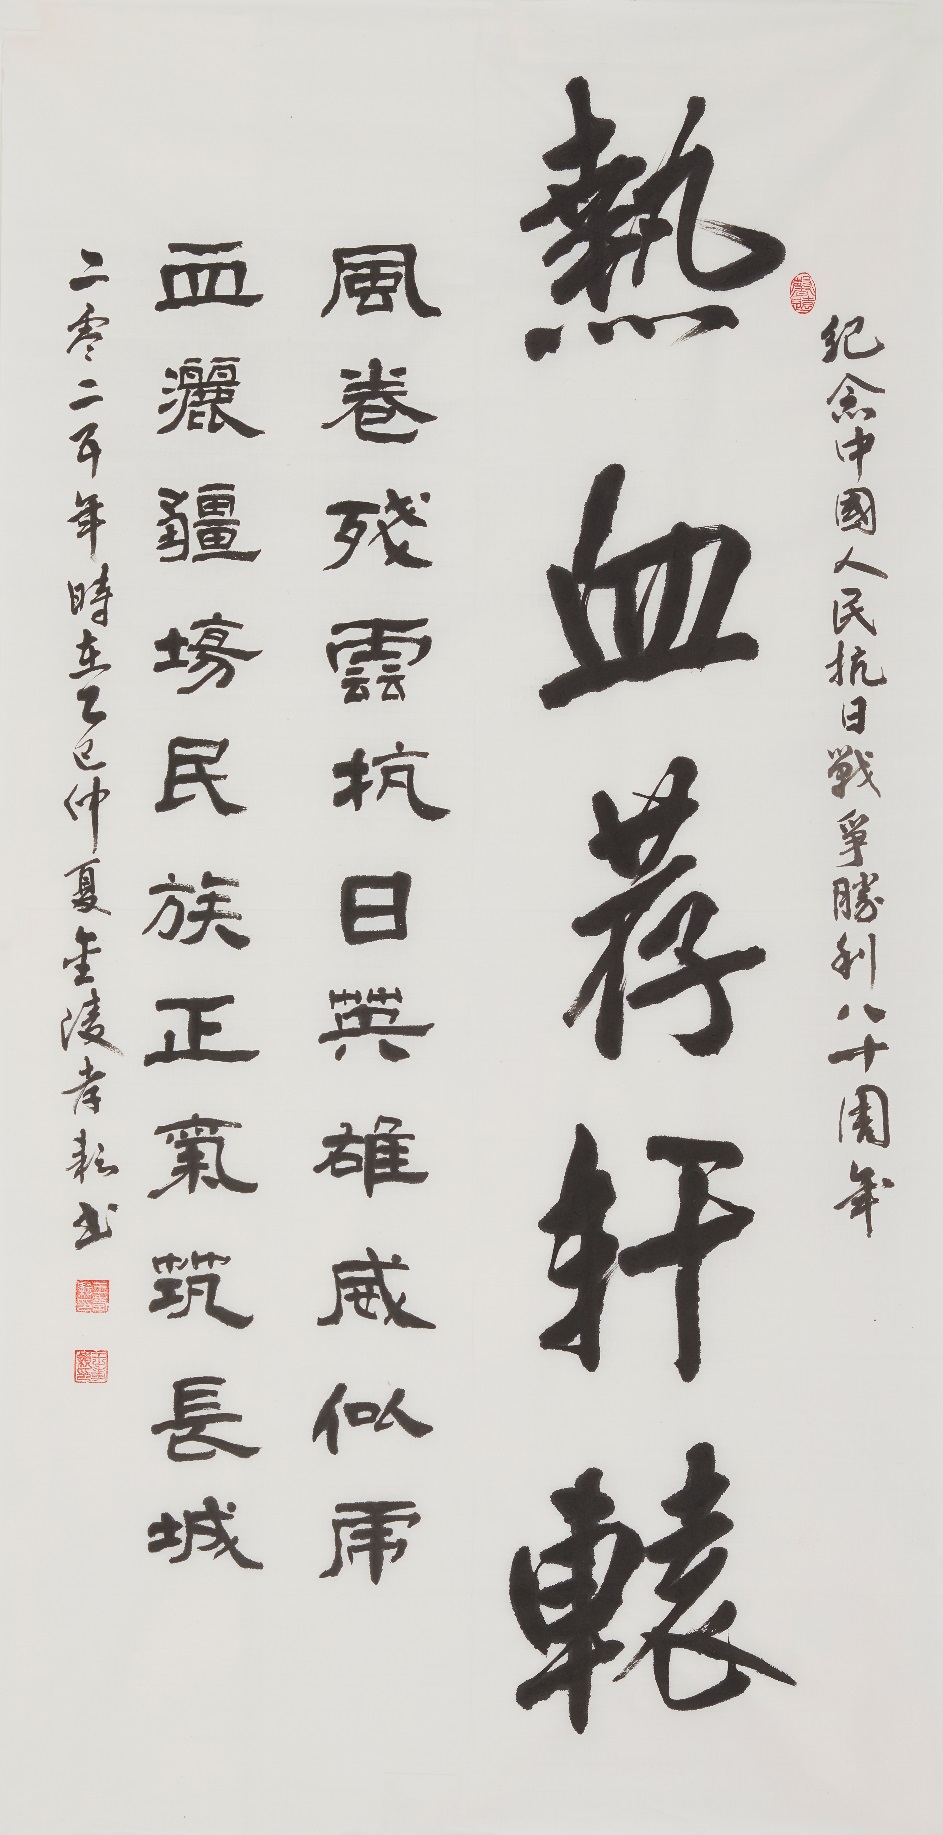 紀念中國人民抗日戰爭勝利八十周年
熱血荐轩轅
風卷殘雲抗日英雄威似虎
血灑疆場民族正氣筑長城
二零二五年時在乙巳仲夏金陵孝耘书